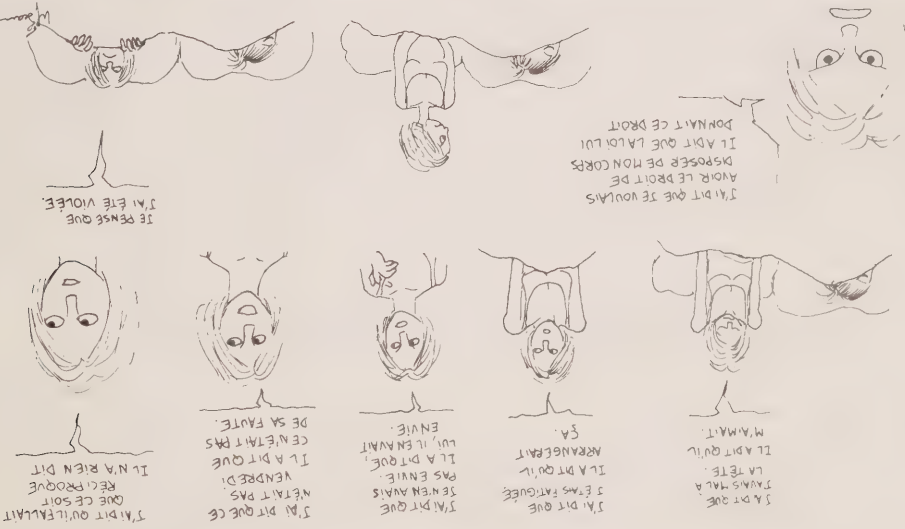 J'AI DIT QUE
J'AVAIS MAL A
LA TÊTE.
IL A DIT QU'IL
M'AIMAIT.
J'AI DIT QUE
J'ÉTAIS FATIGUÉE
IL A DIT QU'IL
ARRANGERAIT
ÇA.
J'AI DIT QUE
JE N'EN AVAIS
PAS ENVIE.
IL A DIT QUE,
LUI, IL EN AVAIT
ENVIE.
J'AI DIT QUE CE
N'ÉTAIT PAS
VENDREDI.
IL A DIT QUE
CE N'ÉTAIT PAS
DE SA FAUTE.
J'AI DIT QU'IL FALLAIT
QUE CE SOIT
RÉCIPROQUE
IL N'A RIEN DIT
J'AI DIT QUE JE VOULAIS
AVOIR LE DROIT DE
DISPOSER DE MON CORPS
IL A DIT QUE LA LOI LUI
DONNAIT CE DROIT
JE PENSE QUE
J'AI ÉTÉ VIOLÉE.